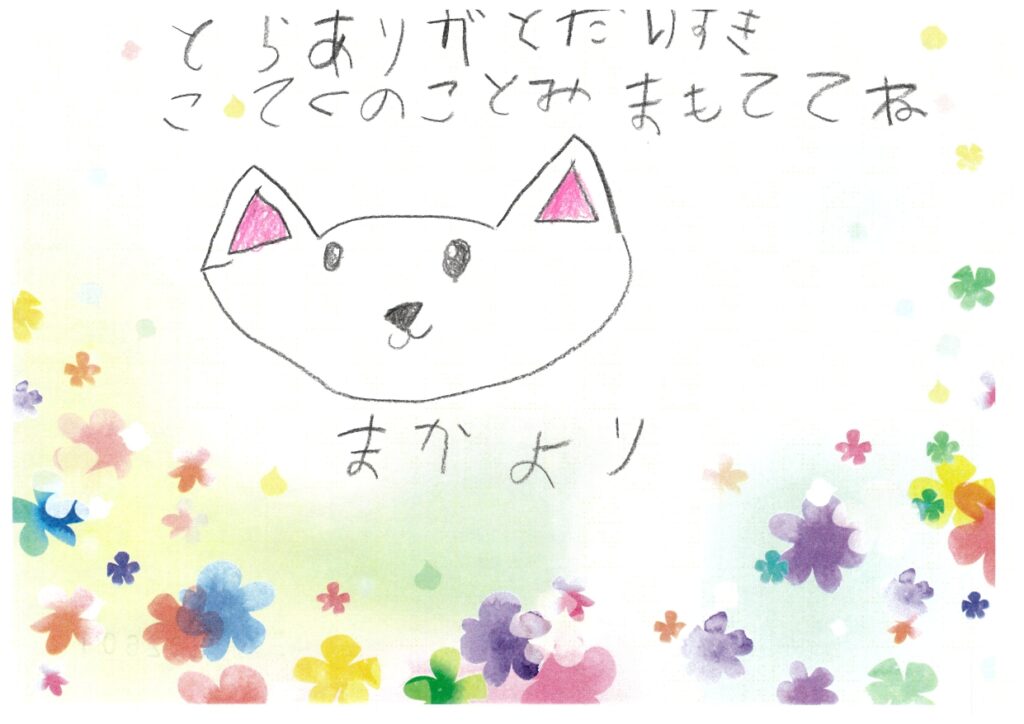 とらありがとだいすき
こてくのことみまもててね
まかより